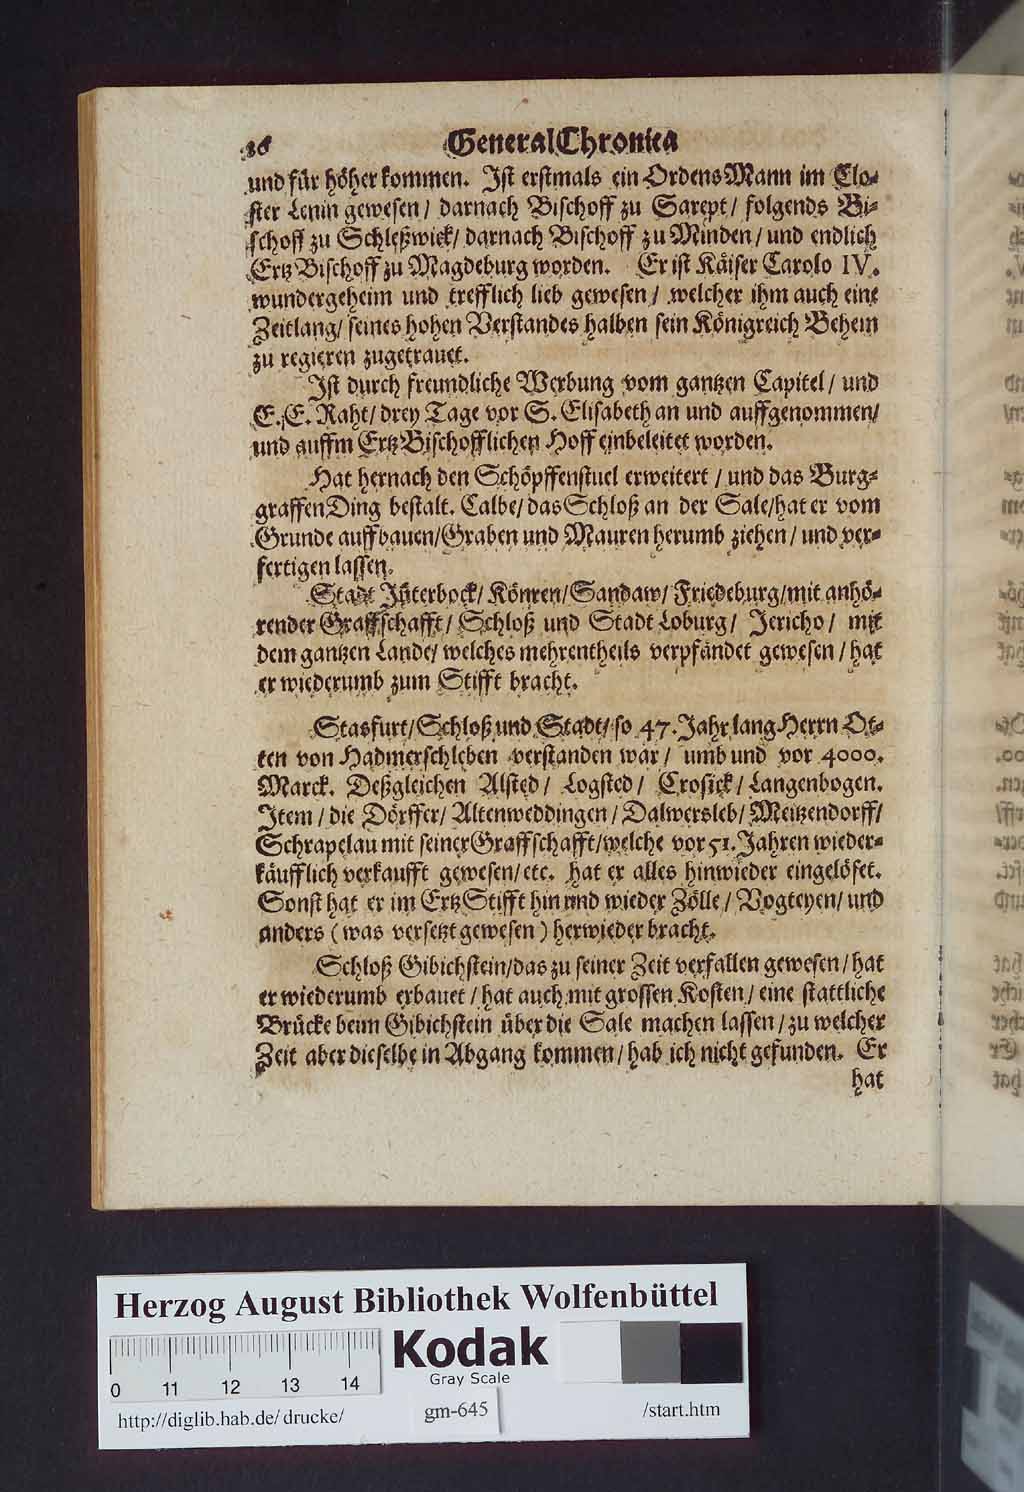 GeneralChronica
und für höher kommen. Ist erstmals ein OrdensMann im Clo-
ster Lenin gewesen / darnach Bischoff zu Sarept / folgends Bi-
schoff zu Schleßwick / darnach Bischoff zu Minden / und endlich
ErtzBischoff zu Magdeburg worden. Er ist Käiser Carolo IV.
wundergeheim und trefflich lieb gewesen / welcher ihm auch eine
Zeitlang / seines hohen Verstandes halben sein Königreich Behem
zu regieren zugetrauet.
Ist durch freundliche Werbung vom gantzen Capitel / und
E. E. Raht / drey Tage vor S. Elisabeth an und auffgenommen /
und auffm ErtzBischofflichen Hoff einbeleitet worden.
Hat hernach den Schöpffenstuel erweitert / und das Burg-
graffenDing bestalt. Calbe / das Schloß an der Sale / hat er vom
Grunde auffbauen / Graben und Mauren herumb ziehen / und ver-
fertigen lassen.
Stadt Jüterbock / Könren / Sandaw / Friedeburg / mit anhö-
render Graffschafft / Schloß und Stadt Loburg / Jericho / mit
dem gantzen Lande / welches mehrentheils verpfändet gewesen / hat
er wiederumb zum Stifft bracht.
Stasfurt / Schloß und Stadt / so 47. Jahr lang Herrn Ot-
ten von Hadmerschleben verstanden war / umb und vor 4000.
Marck. Deßgleichen Alsted / Logsted / Crosick / Langenbogen.
Item / die Dörffer / Altenweddingen / Dalwersleb / Meitzendorff /
Schrapelau mit seiner Graffschafft / welche vor 51. Jahren wieder-
käufflich verkaufft gewesen / etc. hat er alles hinwieder eingelöset.
Sonst hat er im ErtzStifft hin und wieder Zölle / Vogteyen / und
anders (was versetzt gewesen) herwieder bracht.
Schloß Gibichstein / das zu seiner Zeit verfallen gewesen / hat
er wiederumb erbauet / hat auch mit grossen Kosten / eine stattliche
Brücke beim Gibichstein über die Sale machen lassen / zu welcher
Zeit aber dieselbe in Abgang kommen / hab ich nicht gefunden. Er
hat
Herzog August Bibliothek Wolfenbüttel
Kodak
Gray Scale
0 11 12 13 14
http://diglib.hab.de/drucke/ gm-645 /start.htm